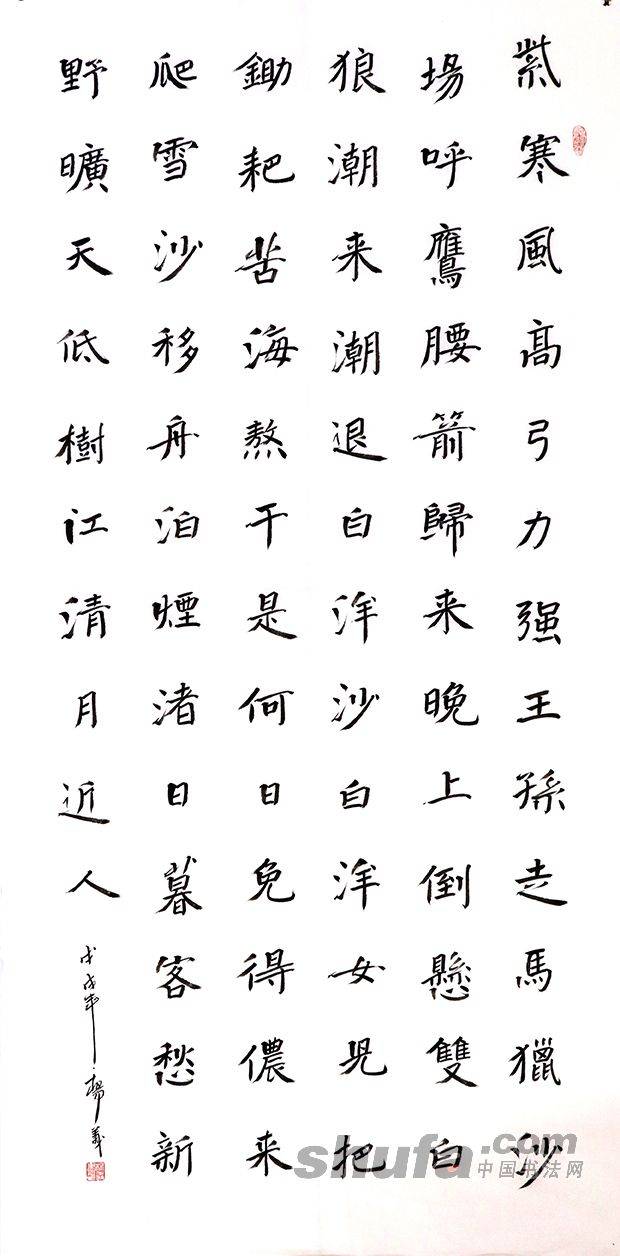 紫寒風高弓力强王孫走馬獵沙
場呼鷹腰箭歸来晚上倒懸雙白
狼潮来潮退白洋沙白洋女児把
鋤耙苦海熬干是何日免得儂来
爬雪沙移舟泊煙渚日暮客愁新
野曠天低樹江清月近人
戊戌年楊義
shufa.com
中国书法网